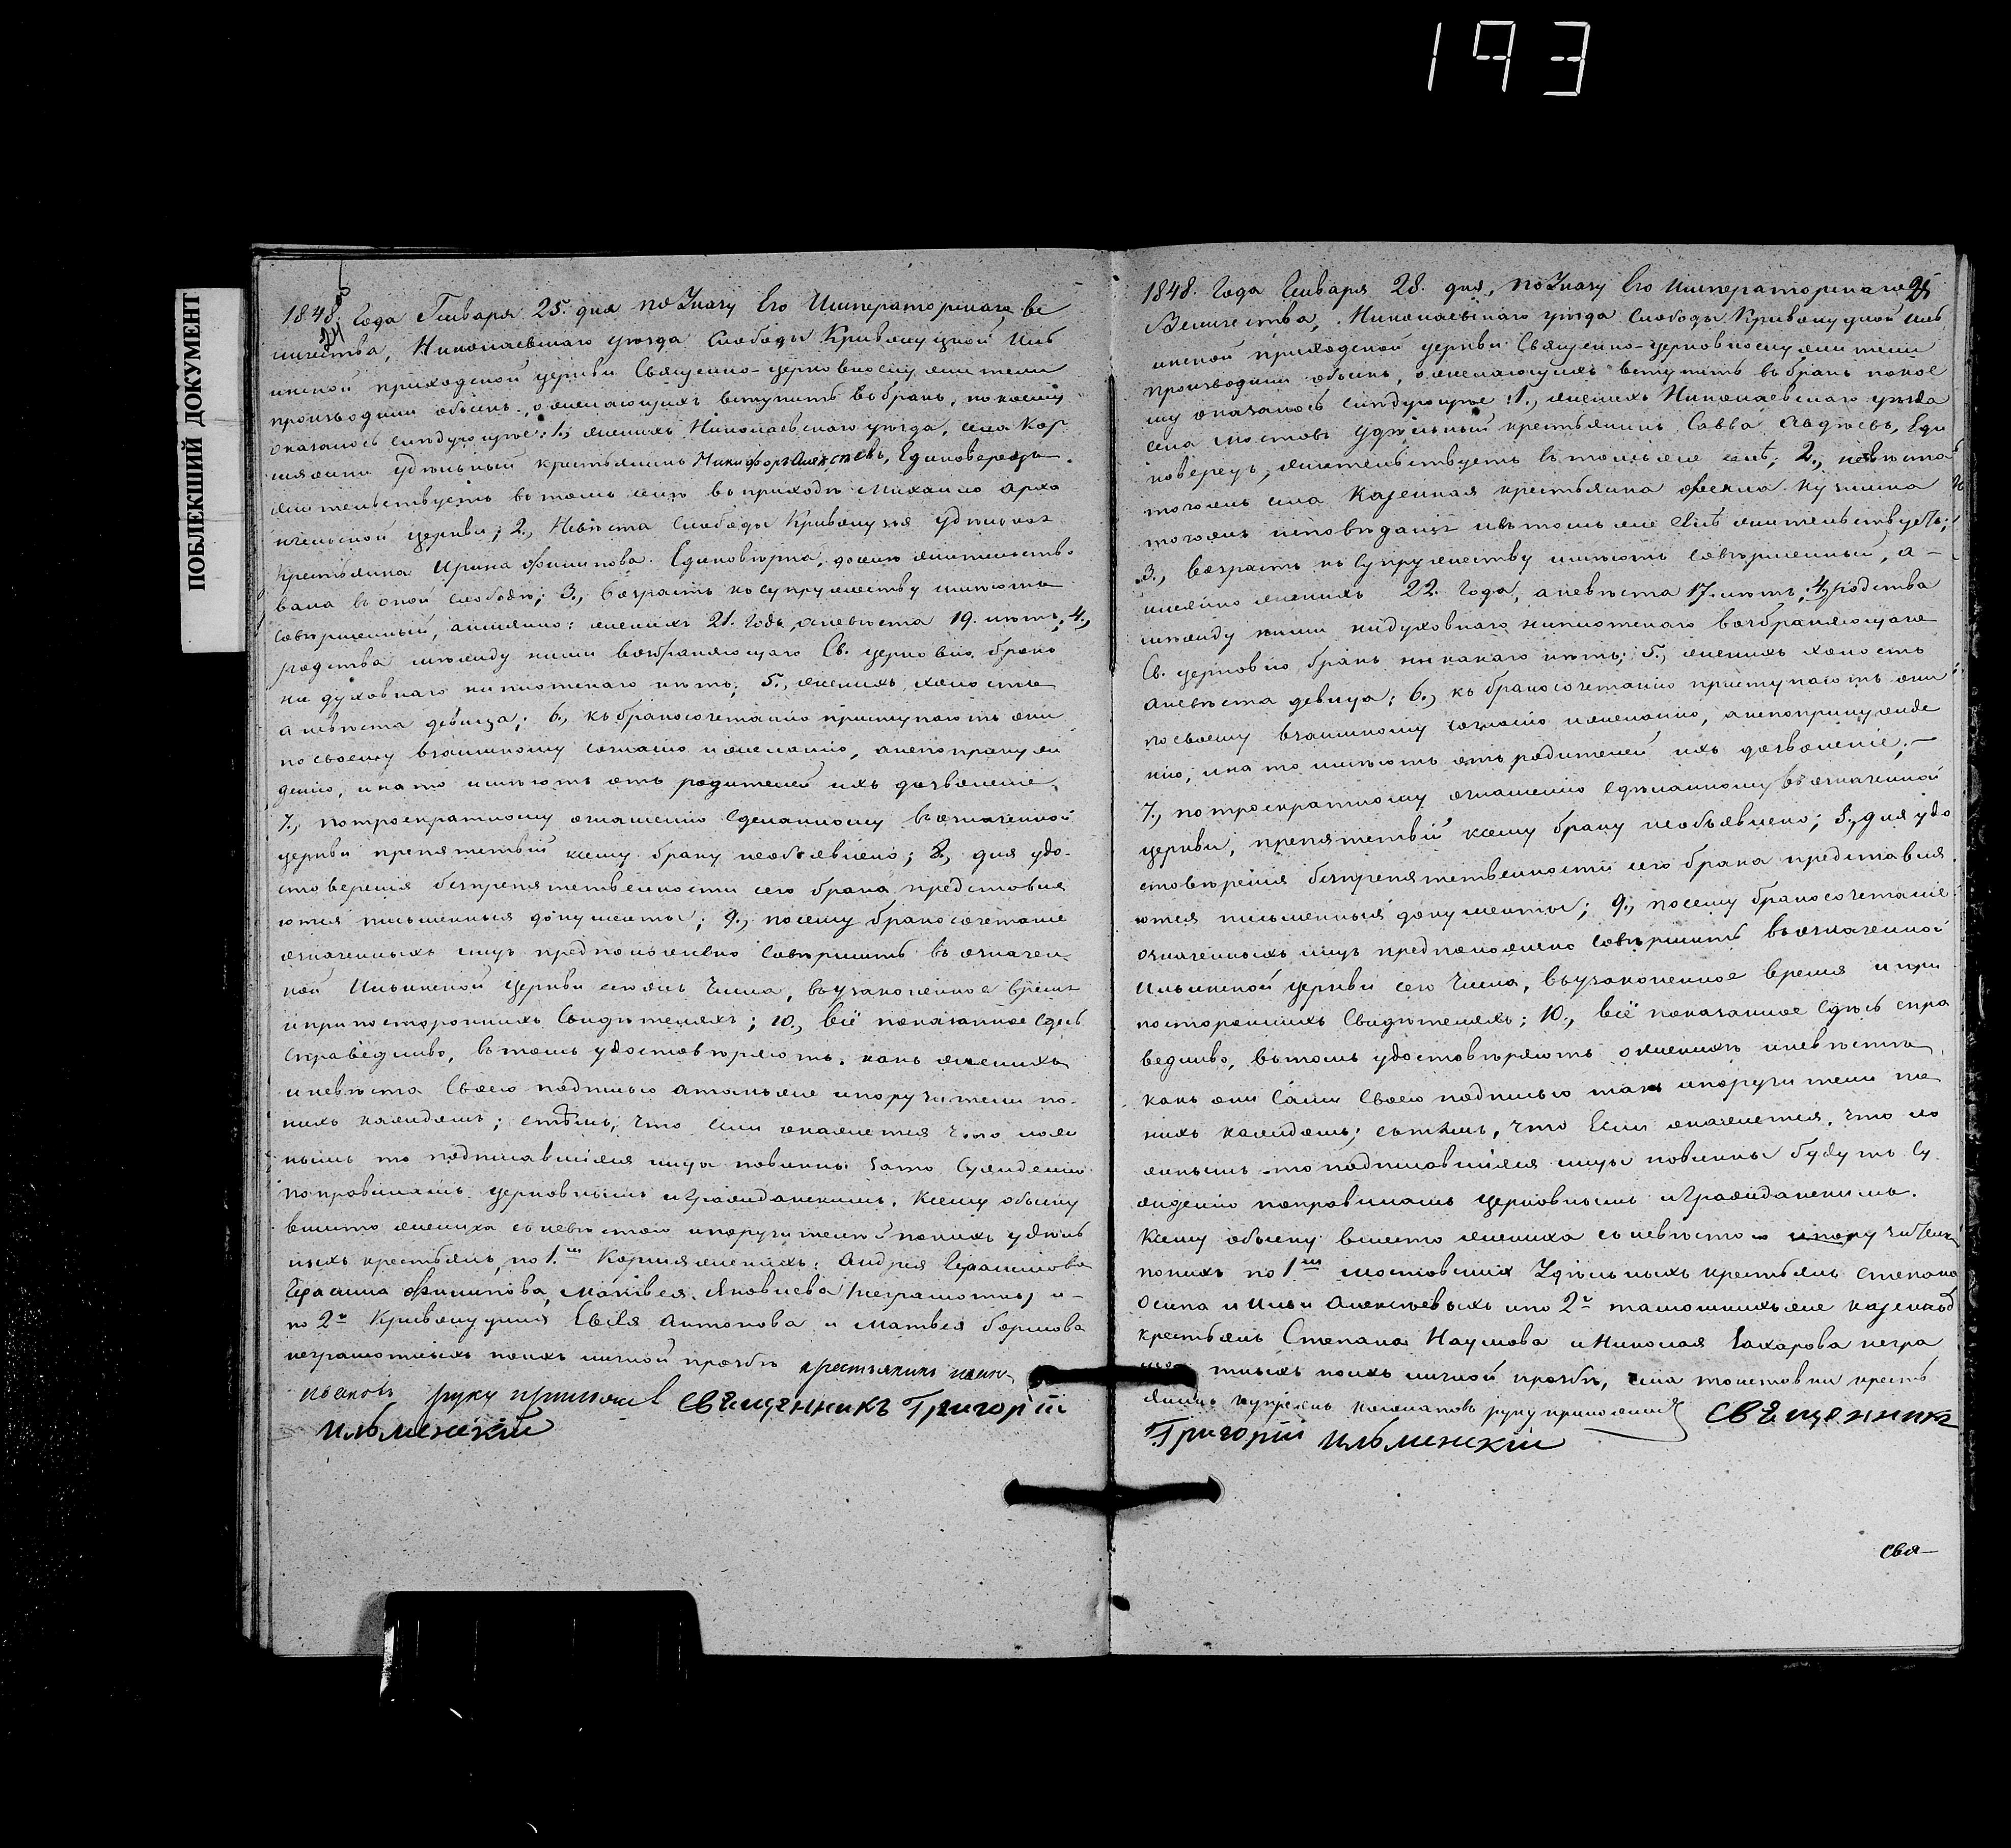 193
ПОБЛЕКШИЙ ДОКУМЕНТ
24
1848. Года Генваря 25. дня по Указу Его Императорскаго Ве
личества, Николаевскаго уезда Слободы Криволуцкой Иль
инской приходской церкви Священно-церковнослужители
производили обыскъ, о желающихъ вступить въ бракъ, по коему
оказалось следующее: 1., женихъ Николаевскаго уезда, села Кор
удѣльный крестьянинъ Никифоръ Алексѣевъ, Единоверецъ
жительствуетъ въ томъ селѣ въ приходѣ Михаило Арха
нгельской церкви; 2., Невѣста Слободы Криволучья удѣльная
Крестьянка Ирина Филипова Единовѣрка, доселѣ жительство
вала въ оной слободѣ; 3., Возрастъ къ супружеству имѣютъ
Совѣршенный, а именно: женихъ 21. годъ, а невѣста 19. лѣтъ; 4.,
родства между ними возбраняющаго Св. церковію бракъ
ни духовнаго ни плотскаго нѣтъ; 5., женихъ холостъ
а невѣста девица; 6., къ бракосочетанію приступаютъ они
по своему взаимному согласію и желанію, а не по принуж
денію, и на то имѣютъ отъ родителей ихъ дозволеніе,
7., по троекратному оглашенію Сделанному въ означенной
церкви препятствій къ сему браку не объявлено; 8., для удо-
стоверенія безпрепятственности сего брака представля
ются письменныя документы; 9., по сему бракосочетаніе
означенныхъ лицъ предположено Совѣршить въ означен
ной Ильинской Церкви сего же Числа, въ узаконенное время
и при постороннихъ Свидѣтеляхъ; 10., всё показанное Сдѣсь
Справедливо, въ томъ удостовѣряютъ, какъ женихъ
и невѣста Своею подписью а также и поручители по
нихъ каждомъ; стѣмъ, что если окажется что лож
нымъ то подписавшіяся лица повинны зато Сужденію
по правиламъ церковнымъ и Гражданскимъ. Къ сему обыску
вместо жениха съ невѣстою и поручителей по нихъ удѣль
ныхъ крестьянъ, по 1.мъ женихѣ: Андрея Герасимова
Герасима Филипова, Яковлева неграмотны, и-
по 2й Криволуцкихъ Антонова и Матвея
неграмотныхъ по ихъ личной прозбѣ крестьянинъ
руку приложилъ Священникъ Григорій
Ильменскій
25
1848. Года Генваря 28. дня, по Указу Его Императорскаго
Величества, Николаевскаго уезда Слободы Криволуцкой Иль
инской приходской церкви Священно-церковнослужители
производили обыскъ, о желающихъ вступить въ бракъ по кое
му оказалось слѣдующее: 1., женихъ Николаевскаго уезда
села Мостовъ Удѣльный крестьянинъ Савва Авдѣевъ, Еди
новерецъ, жительствуетъ въ томъ же селѣ; 2., невѣста
тогожъ села Казенная крестьянка Фекла Кузмина
тогожъ исповѣданія и въ томъ же селѣ жительствуетъ;
3., Возрастъ къ Супружеству имѣютъ Совѣршенный, а-
именно женихъ 22. года, а невѣста 17. лѣтъ; 4., родства
между ними ни духовнаго ни плотскаго возбраняющаго
Св. церковію бракъ никакаго нѣтъ; 5., женихъ холостъ
а невѣста девица; 6., къ бракосочетанію приступаютъ они
по своему взаимному согласію и желанію, а не по принужде
нію, и на то имѣютъ отъ родителей ихъ дозволеніе;-
7., по троекратному оглашенію Сдѣланному въ означенной
церкви, препятствій къ сему браку не объявлено; 8., для удо
стовѣренія безпрепятственности сего брака представля
ются письменныя документы; 9., по сему бракосочетаніе
означенныхъ лицъ предположено Совѣршить въ означенной
Ильинской церкви сего Числа, въ узаконенное время и при
постороннихъ Свидѣтеляхъ; 10., всё показанное Сдѣсь спра
ведливо, въ томъ удостовѣряютъ о женихѣ и невѣстѣ,
какъ они Сами Своею подписью такъ и поручители по
нихъ каждомъ; съ тѣмъ, что Если окажется, что ло
жнымъ то подписавшіяся лицы повинны будутъ Су
жденію по правиламъ Церковнымъ и Гражданскимъ.
Къ сему обыску вместо жениха съ невѣстою и поручителей
по нихъ по 1мъ мостовскихъ Удѣльныхъ крестьянъ Степана
Осипа и Ильи Алексѣевыхъ и по 2й тамошнихъ же казенныхъ
крестьянъ Степана Наумова и Николая Захарова негра
мотныхъ по ихъ личной прозбѣ, села крестъ
янинъ руку приложилъ Священникъ
Григорій Ильменскій
Свя-